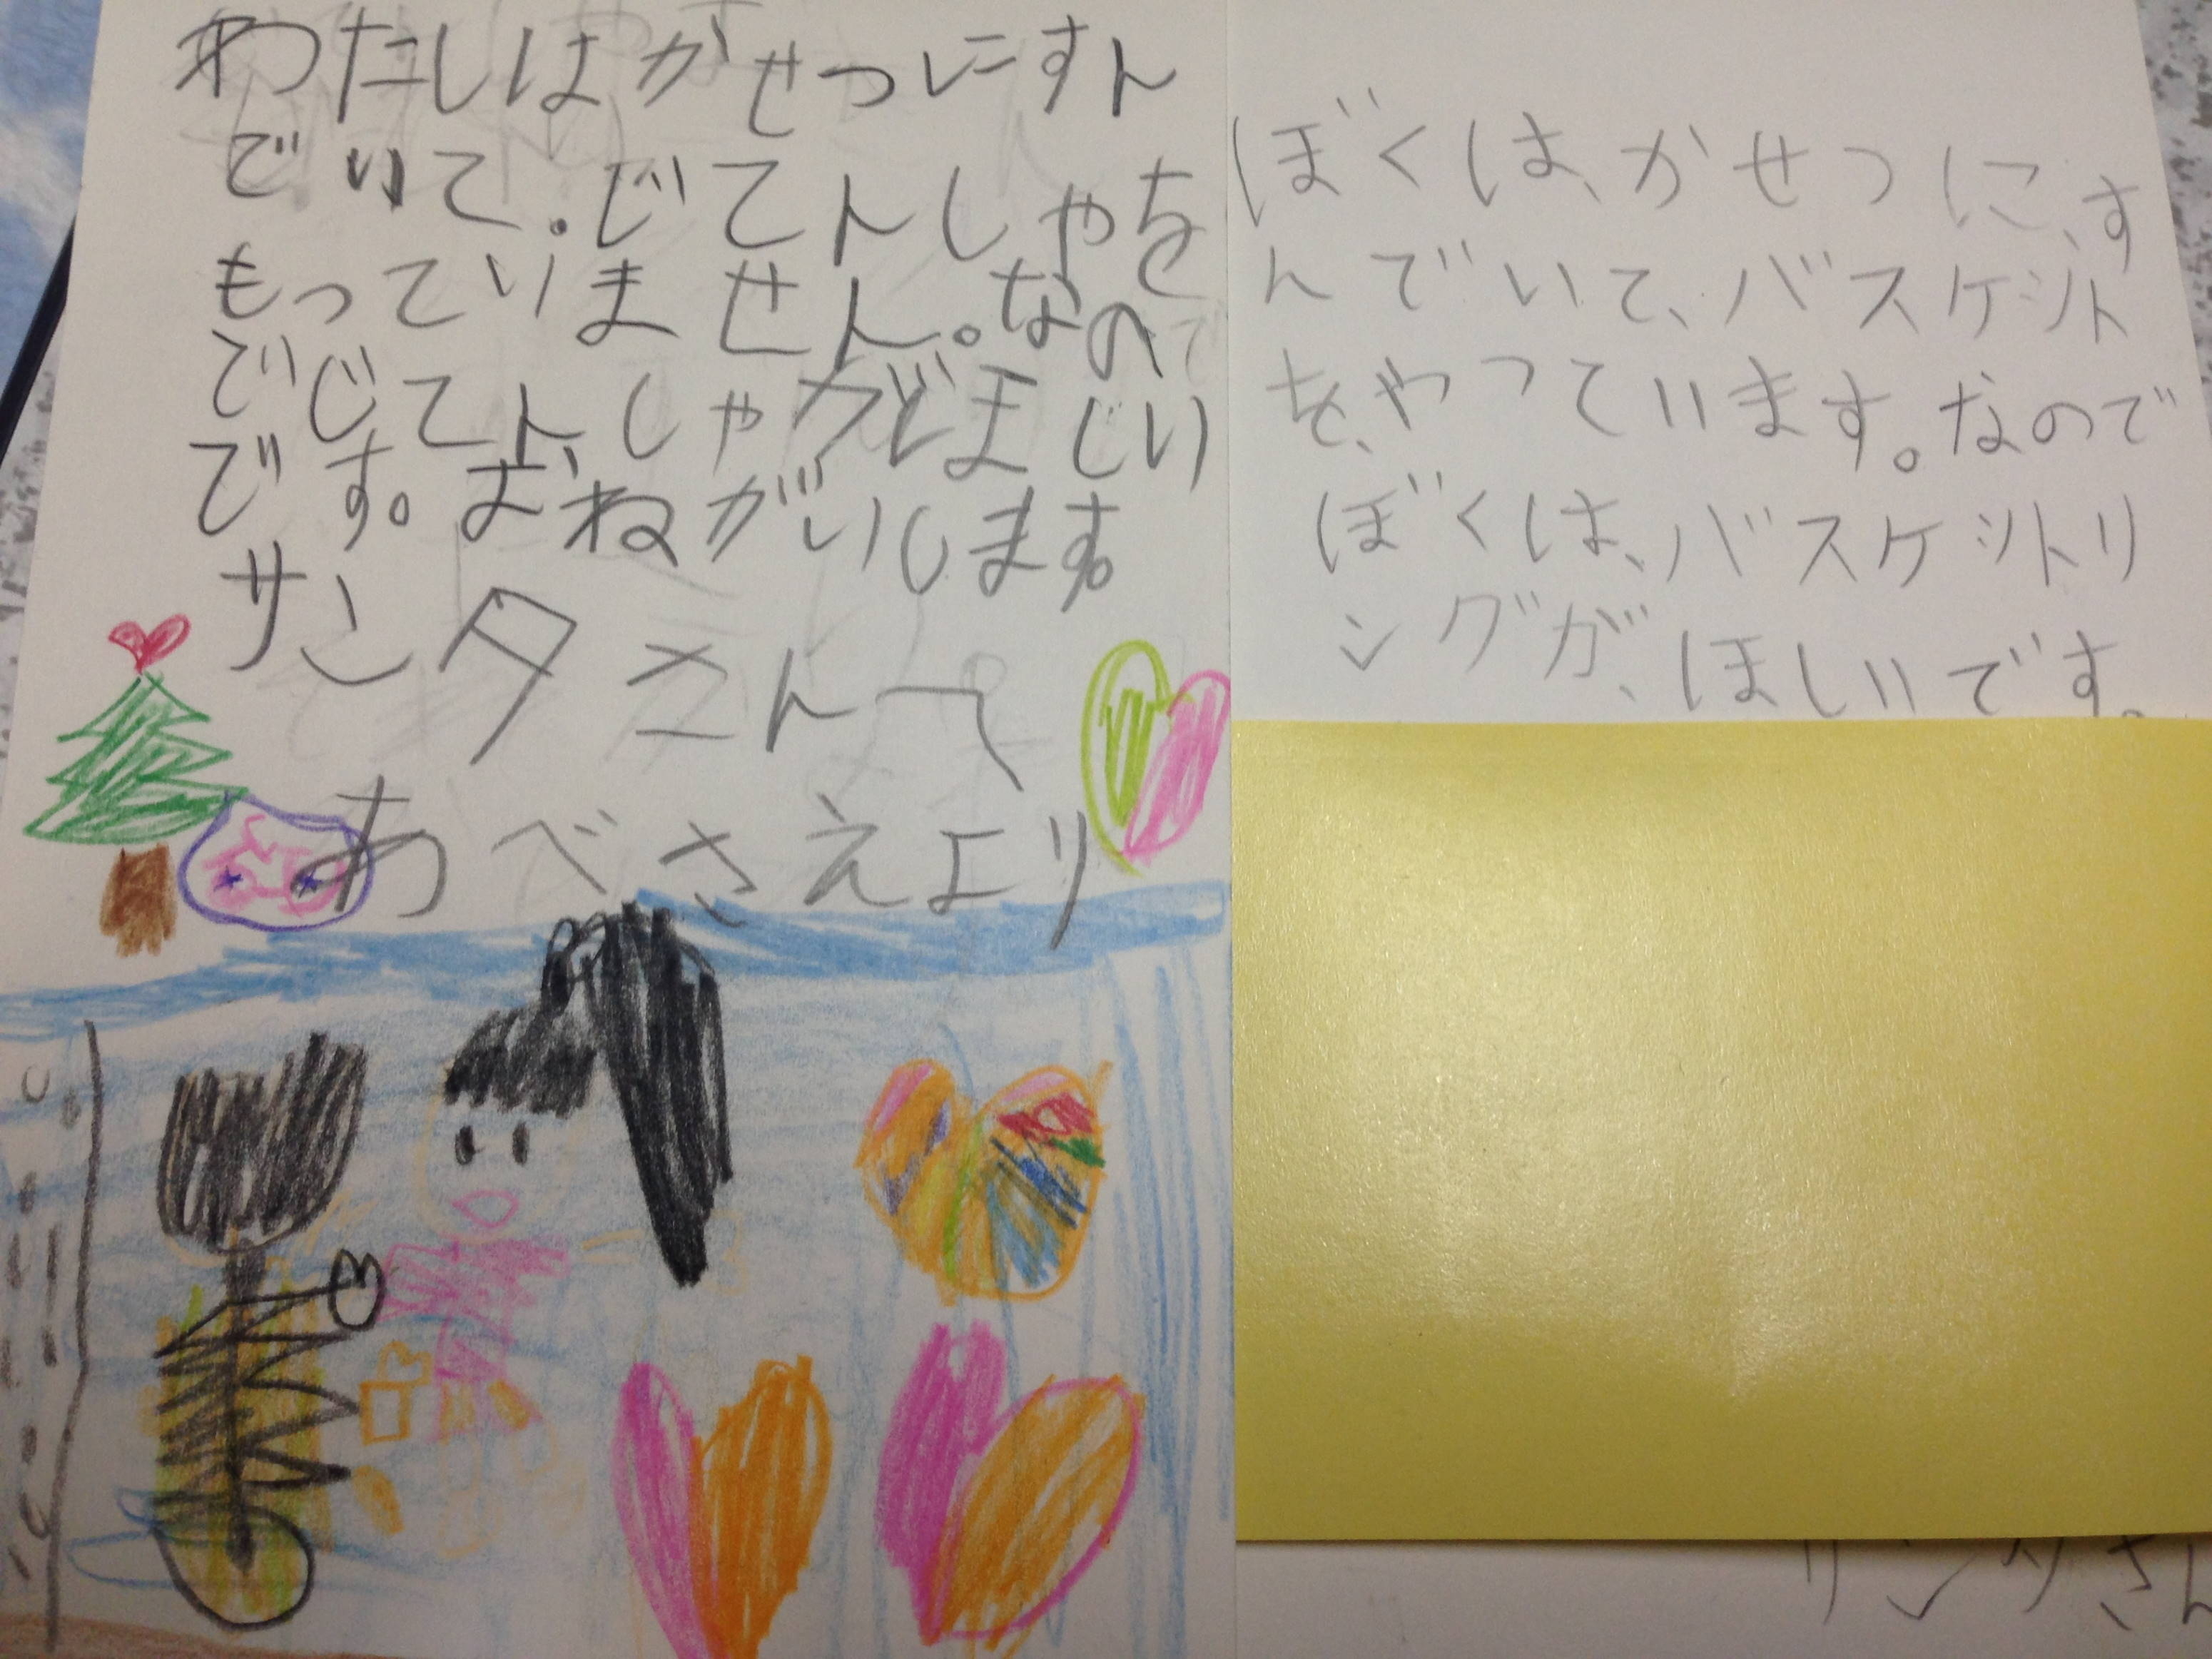 わたしはかせつにすん
でいて.じてんしゃを
もっていません。なの
でじてんしゃがどほしい
です。おねがいします。
サンタさんへ
あべさえより
ぼくは、かせつに、す
んでいて、バスケット
を、やっています。なので
ぼくは、バスケットリ
ングが、ほしいです。
サンタさん